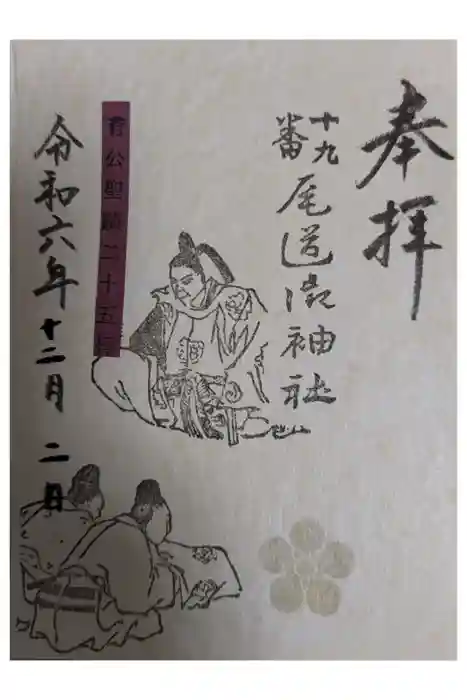 奉拝
十九番
尾道御袖社
菅公聖蹟二十五拝
令和六年十二月二日